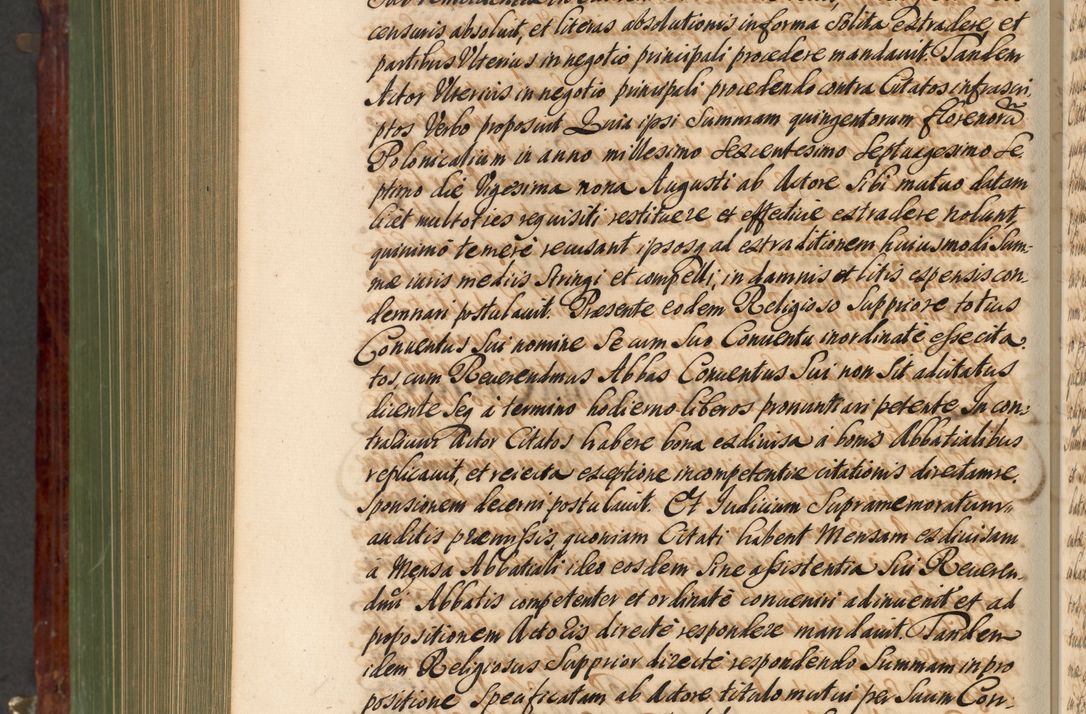 censuris absoluit, et literas absolutionis in forma solita extradere, et
partibus Vlterius in negotio principali procedere mandauit. Tandem
Actor Vlterius in negotio principali procedendo contra Citatos infrascri,
ptos Verbo proposuit Quia ipsi Summam quingentorum florenorũ
Polonicalium in anno millesimo sexcentesimo septuagesimo se,
ptimo die Vigesima nona Augusti ab Actore sibi mutuo datam
licet multoties requisiti restituere et effectiue extradere nolunt
quinimõ temerè recusant ipsosq ad extraditionem huiusmodi Sum-
mæ iuris mediis stringi et compelli, in damnis et litis expensis con-
demnari postulauit. Præsente eodem Religioso Suppriore totius
Conuentus sui nomine Se cum suo Conuentu inordinatè esse cita,
tos, cum Reuerendmus Abbas Conuentus sui non sit adcitatus
dicente seq à termino hodierno liberos pronuntiari petente In con:
trarium Actor Citatos habere bona exdiuisa à bonis Abbatialibus
replicauit, et reiecta exceptione incompetentiæ citationis directam re,
sponsionem decerni postulauit. Et Iudicium Supramemoratum,
auditis præmissis, quoniam Citati habent Mensam exdiuisam
à Mensa Abbatiali ideo eosdem sine assistentia sui Reueren,
dmi Abbatis competenter et ordinatè conueniri adinuenit et ad
propositionem Actoris directè respondere mandauit. Tandem
idem Religiosus Supprior directè respondendo Summam in pro
positione Specificatam ab Actore titulo mutui per suum Con-